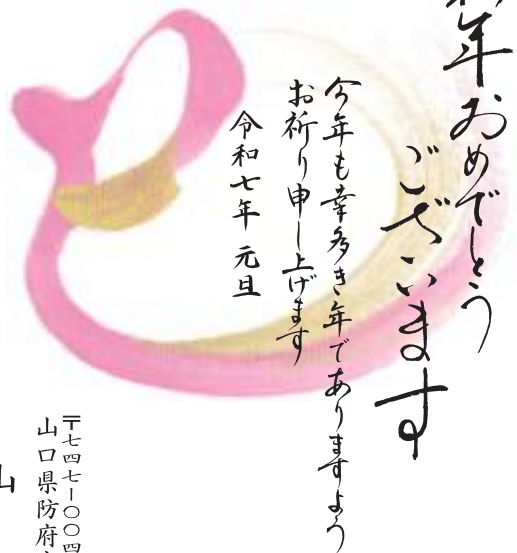 年おめでとう
ございます
今年も幸多き年でありますよう
お祈り申し上げます
令和七年 元旦
〒七四七ー〇〇四
山口県防府
山